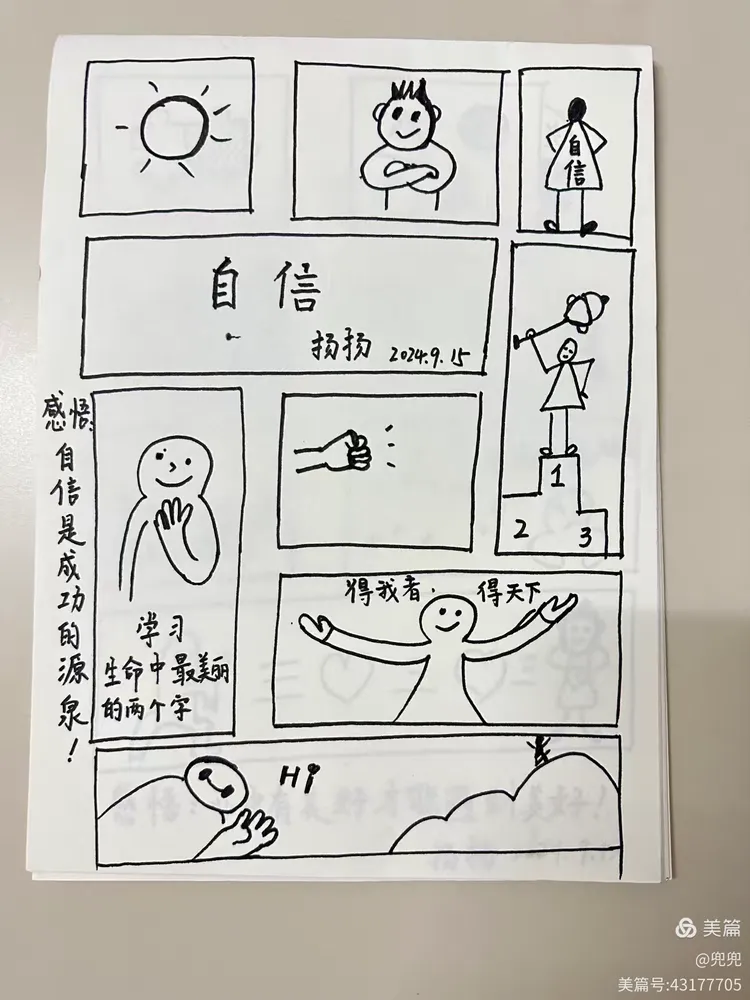 自信
自信
扬扬 2024.9.15
感悟:
自信是成功的源泉!
1
2
3
学习
生命中最美丽
的两个字
得我者,得天下
Hi
美篇
@兜兜
美篇号:43177705